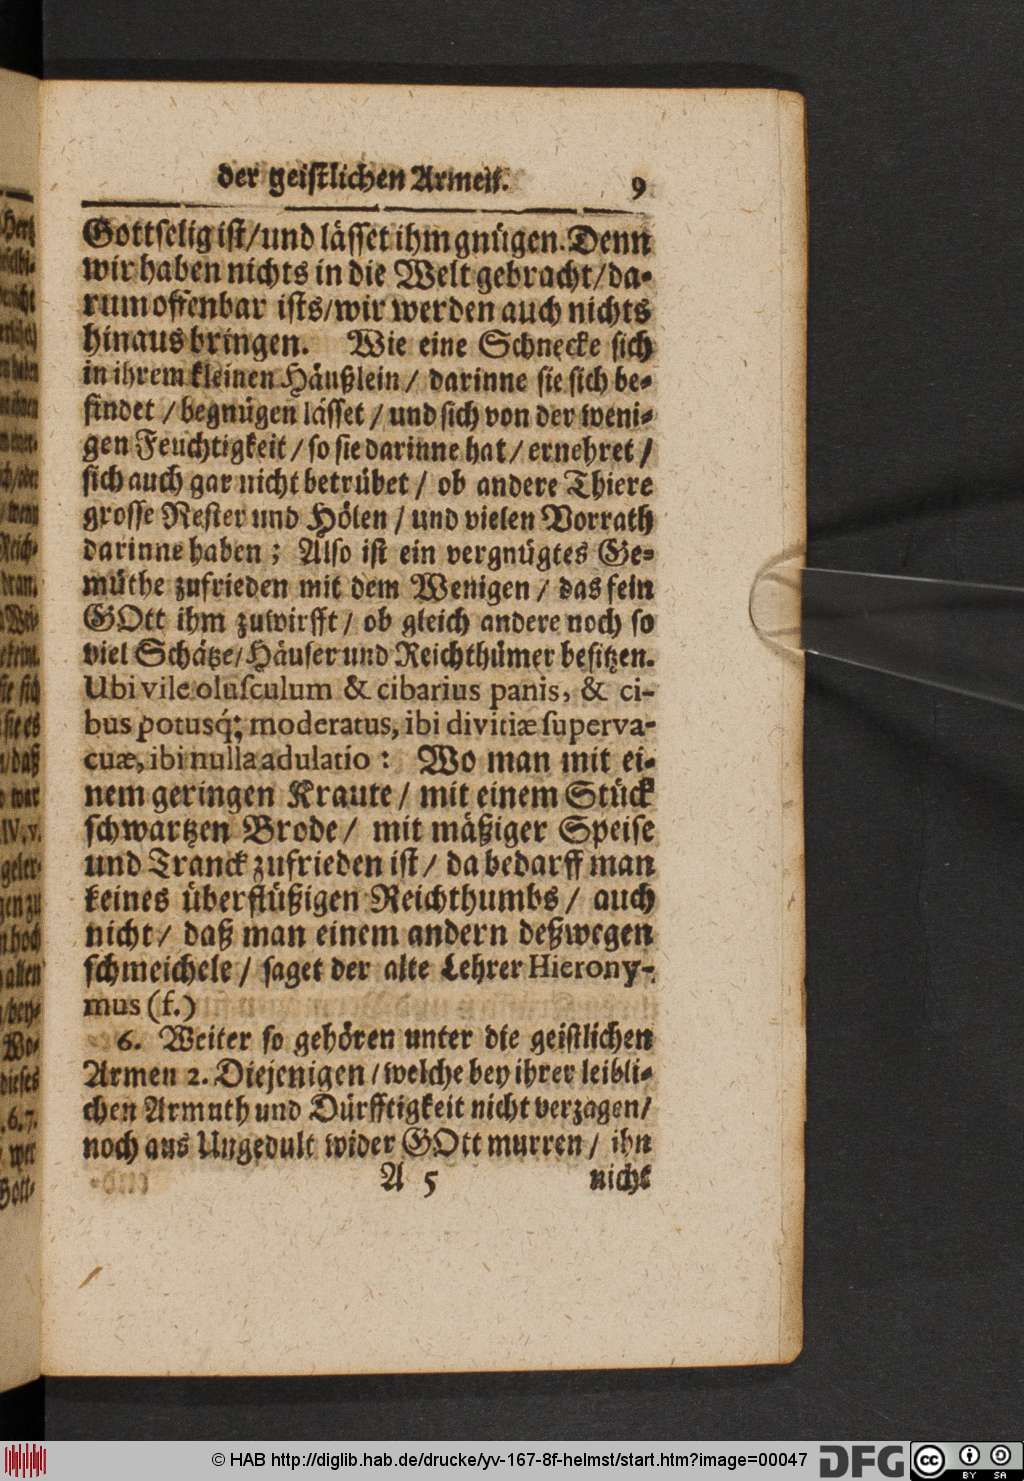 der geistlichen Armen. 9
Gottselig ist/und lässet ihm gnügen. Denn
wir haben nichts in die Welt gebracht/da-
rum offenbar ists/wir werden auch nichts
hinaus bringen. Wie eine Schnecke sich
in ihrem kleinen Häußlein/ darinne sie sich be-
findet /begnügen lässet/und sich von der weni-
gen Feuchtigkeit/so sie darinne hat/ernehret/
sich auch gar nicht betrübet/ ob andere Thiere
grosse Nester und Hölen/und vielen Vorrath
darinne haben; Also ist ein vergnügtes Ge-
müthe zufrieden mit dem Wenigen/ das sein
GOtt ihm zuwirfft/ ob gleich andere noch so
viel Schätze/Häuser und Reichthümer besitzen.
Ubi vile olusculum & cibarius panis, & ci-
bus potusq́; moderatus, ibi divitiæ superva-
cuæ, ibi nulla adulatio: Wo man mit ei-
nem geringen Kraute/ mit einem Stück
schwartzen Brode/ mit mäßiger Speise
und Tranck zufrieden ist/ da bedarff man
keines überflüßigen Reichthumbs/ auch
nicht/ daß man einem andern deßwegen
schmeichele/ saget der alte Lehrer Hierony-
mus (f.)
6. Weiter so gehören unter die geistlichen
Armen 2. Diejenigen/welche bey ihrer leibli-
chen Armuth und Dürfftigkeit nicht verzagen/
noch aus Ungedult wider GOtt murren/ ihn
A 5 nicht
© HAB http://diglib.hab.de/drucke/yv-167-8f-helmst/start.htm?image=00047
DFG
cc BY SA